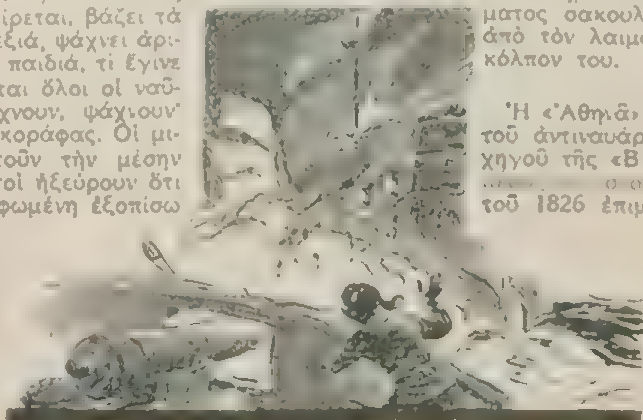 ίρεται, βάζει τὰ
εξιά, ψάχνει ἀρι-
παιδιά, τί ἔγινε
ται ὅλοι οἱ ναῦ-
χνουν, ψάχνουν
κοράφας. Οἱ μι-
τοῦν τὴν μέσην
τοὶ ἠξεύρουν ὅτι
φωμένη ἐξοπίσω
ματος σακουλ
ἀπὸ τὸν λαιμ
κόλπον του.
Ἡ «Ἀθηνᾶ»
τοῦ ἀντιναυάρ
χηγοῦ τῆς «Β
τοῦ 1826 ἐπιμ